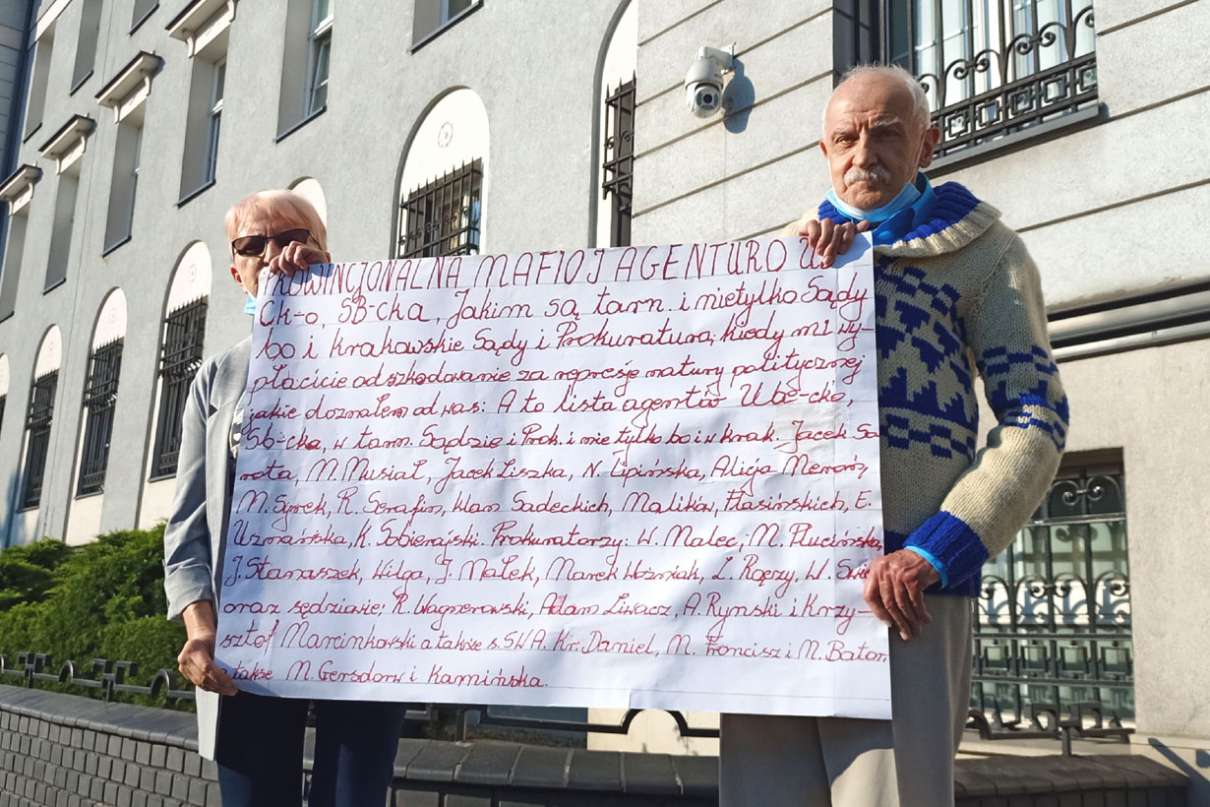 PROWINCJONALNA MAFIO I AGENTURO UB
Ck-o, SB-cka, Jakim są tarn. i nietylko Sądy
bo i krakowskie Sądy i Prokuratura; kiedy mi wy-
płacicie odszkodowanie za represje natury politycznej
jakie doznałem od was: A to lista agentów Ube-cko,
Sb-cka, w tarn. Sądzie i Prok. i nie tylko bo i w krak. Jacek Sa
nota, M. Musiał, Jacek Liszka, N. Lipińska, Alicja
M. Symek, R. Serafin, klan Sadeckich, Malików, Flasińskich, E.
Uzmańska, K. Sobierajski. Prokuratorzy: W. Malec, M. Plucińska,
J. Stanaszek, Wilga, J. Małek, Marek Woźniak, L. Rączy, W.
oraz sędziowie; R. Wagnerowski, Adam Liwacz, A. Rymski i Krzy-
sztof Marcinkowski a także s. SWA. Kr. Daniel, M. Francisz i M. Bator,
a także M. Gersdorw i Kamińska.